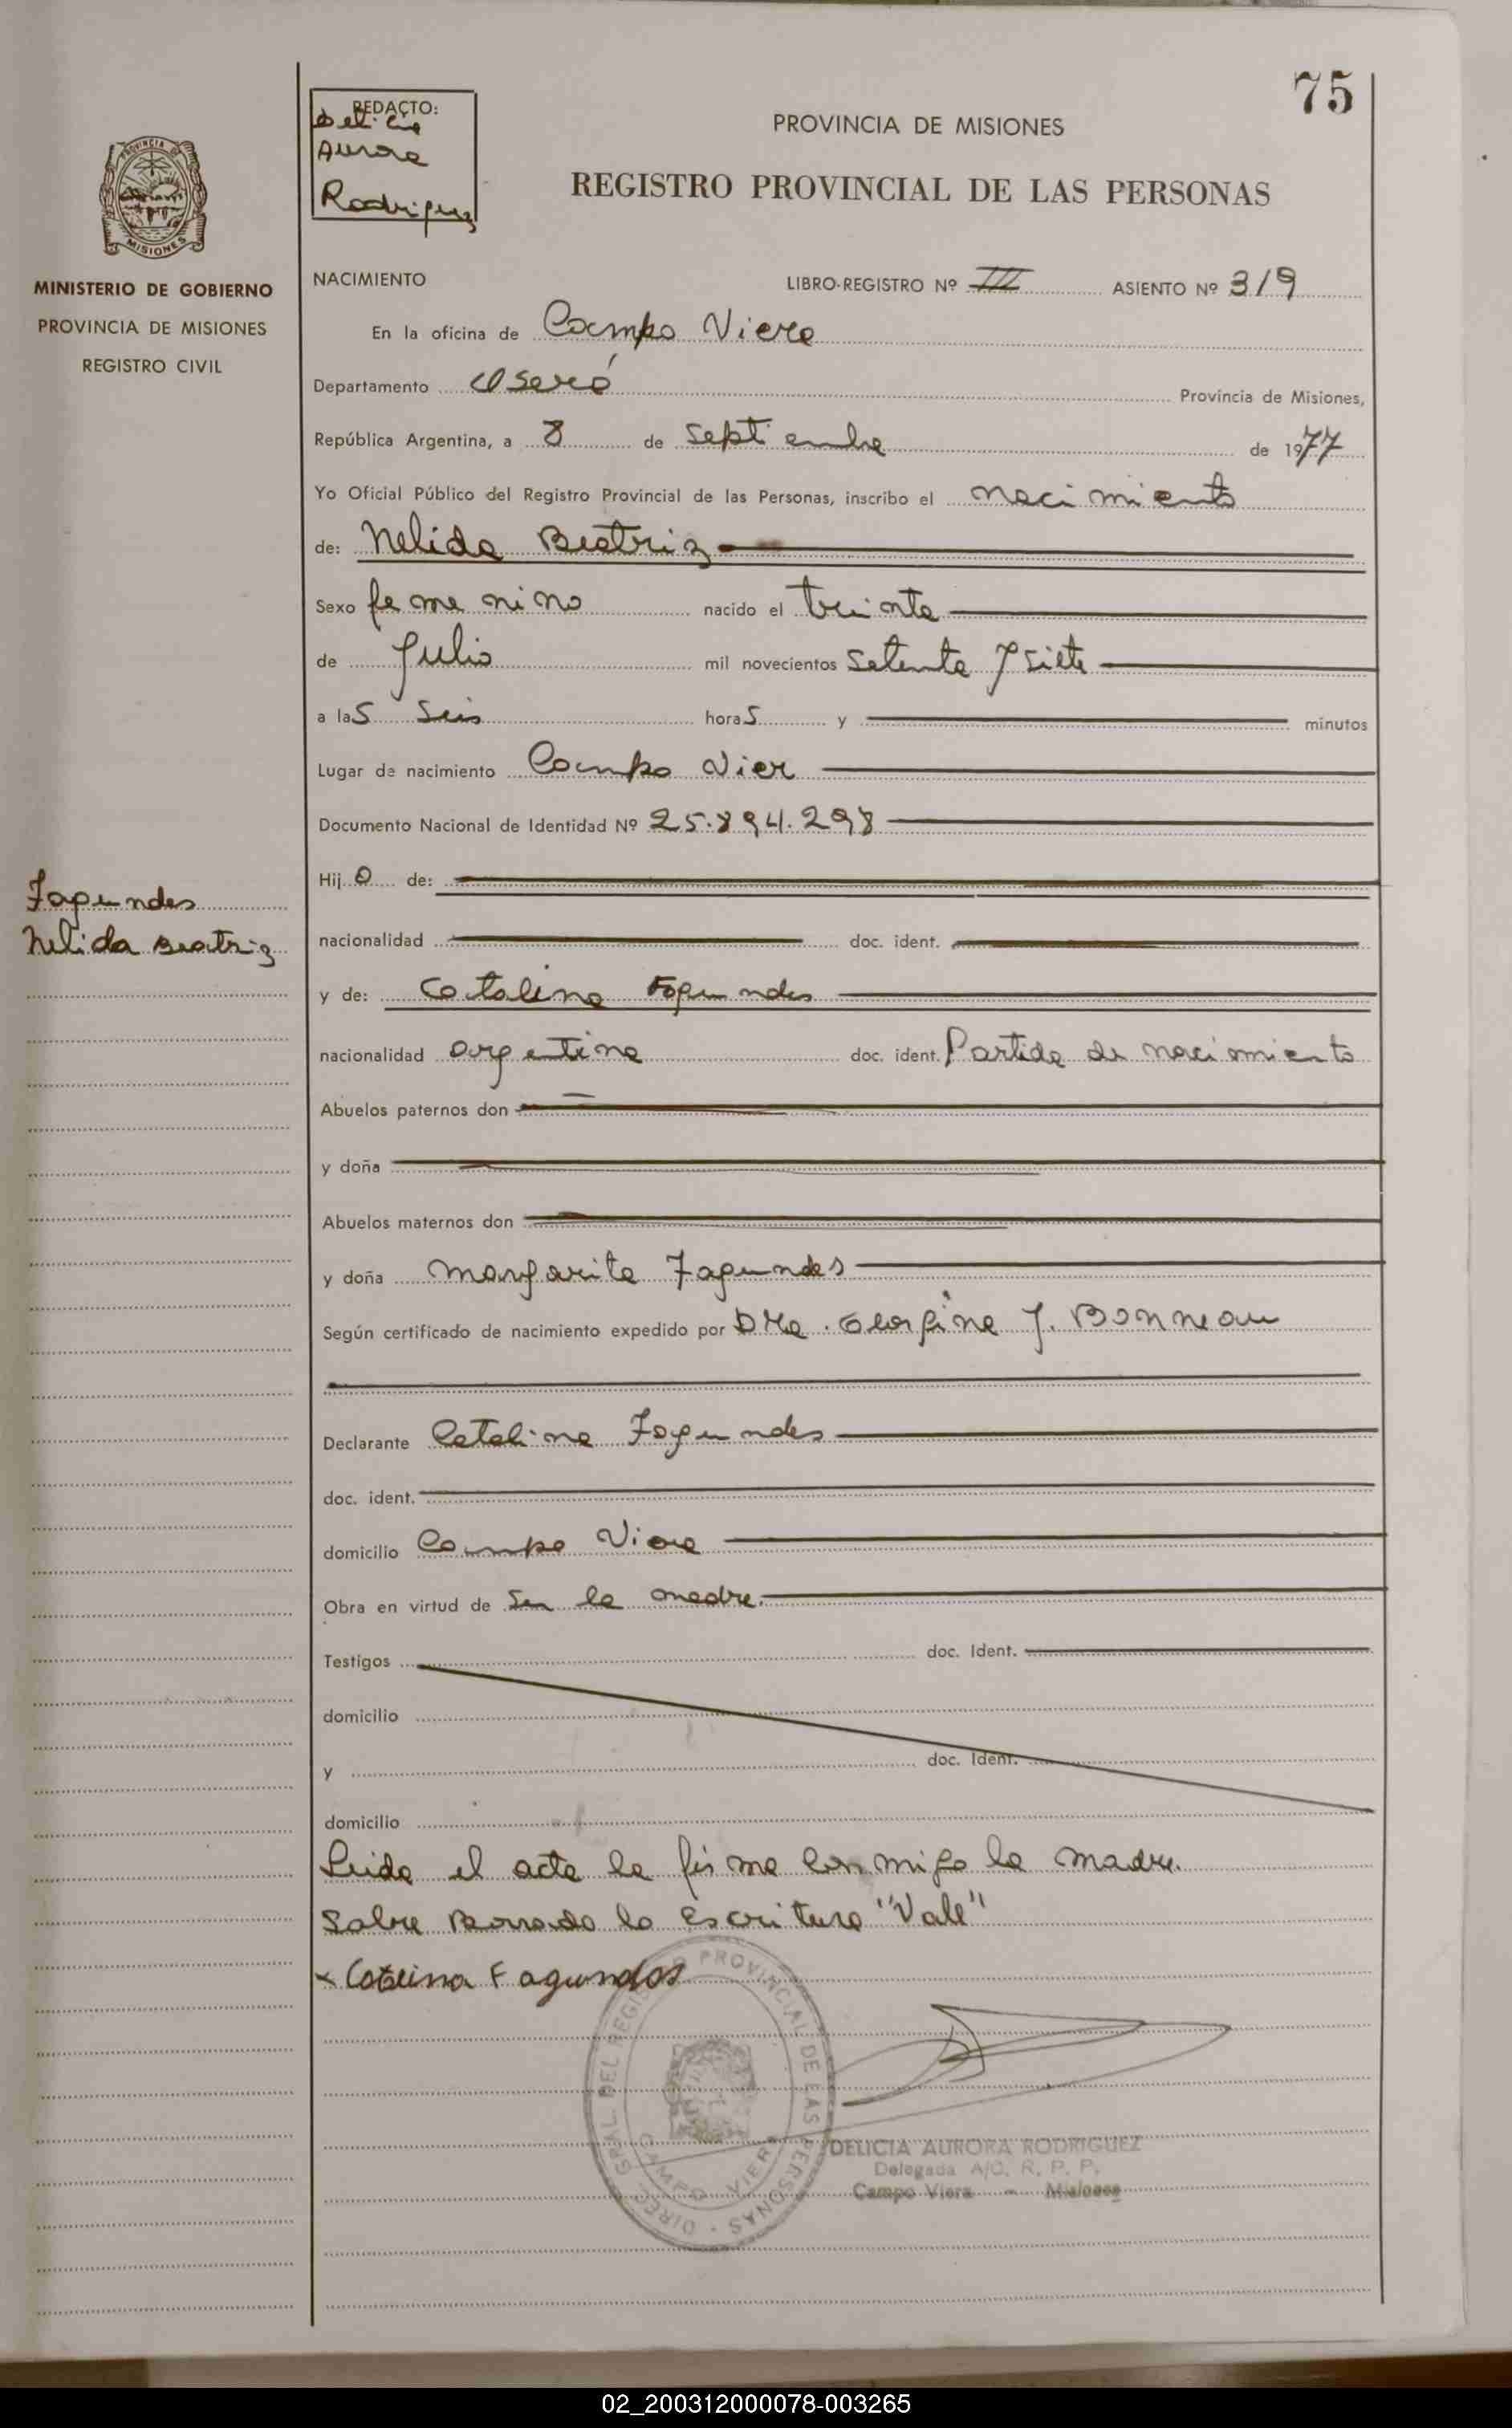 75
REDACTO:
Delicia
Aurora
Rodriguez
PROVINCIA DE MISIONES
REGISTRO PROVINCIAL DE LAS PERSONAS
PROVINCIA DE
MISIONES
MINISTERIO DE GOBIERNO
PROVINCIA DE MISIONES
REGISTRO CIVIL
NACIMIENTO LIBRO-REGISTRO Nº III ASIENTO Nº 319
En la oficina de Campo Viera
Departamento Oberá Provincia de Misiones,
República Argentina, a 8 de septiembre de 1977
Yo Oficial Público del Registro Provincial de las Personas, inscribo el nacimiento
de: Nelida Beatriz
Sexo femenino nacido el treinta
de Julio mil novecientos setenta y siete
a las seis horas y minutos
Lugar de nacimiento Campo Vier
Documento Nacional de Identidad Nº 25.894.298
Hijo de:
nacionalidad doc. ident.
Fagundes
Nelida Beatriz
y de: Catalina Fagundes
nacionalidad argentina doc. ident. Partida de nacimiento
Abuelos paternos don
y doña
Abuelos maternos don
y doña Margarita Fagundes
Según certificado de nacimiento expedido por Dra. Georgina J. Bonneau
Declarante Catalina Fagundes
doc. ident.
domicilio Campo Viera
Obra en virtud de ser la madre.
Testigos doc. Ident.
domicilio
y doc. Ident.
domicilio
Leida el acta la firma conmigo la madre.
Sobre Borrado lo escritura "Vale"
x Catalina Fagundos
DIREC. GRAL. DEL REGISTRO PROVINCIAL DE LAS PERSONAS
CAMPO VIERA
DELICIA AURORA RODRIGUEZ
Delegada A/C. R. P. P.
Campo Viera - Misiones
02_200312000078-003265